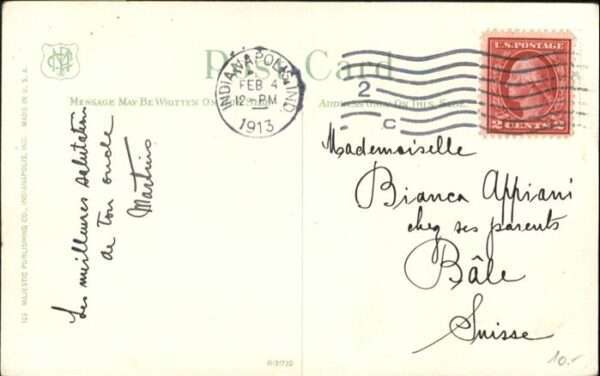 Post Card
MESSAGE MAY BE WRITTEN ON
ADDRESS ONLY ON THIS SIDE.
INDIANAPOLIS, IND
FEB 4
12-PM
1913
2
C
U.S. POSTAGE
2 CENTS 2
Les meilleures salutations
de ton oncle
Martino
Mademoiselle
Bianca Appiani
chez ses parents
Bâle
Suisse
MAJESTIC PUBLISHING CO., INDIANAPOLIS, IND. MADE IN U. S. A.
10.-